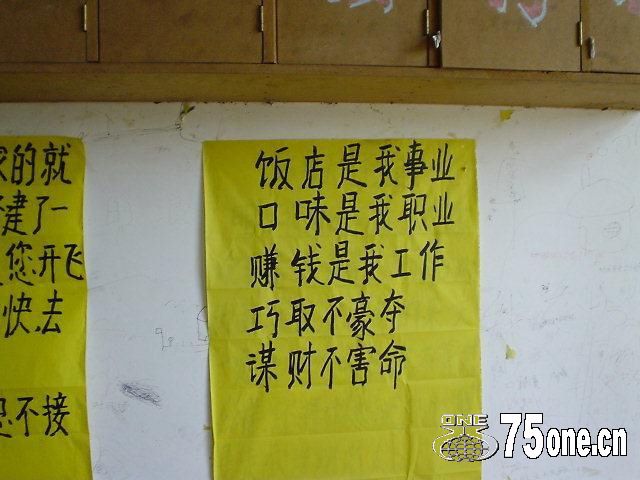 的就
建了一
您开飞
快去
不接
饭店是我事业
口味是我职业
赚钱是我工作
巧取不豪夺
谋财不害命
ONE
75one.cn